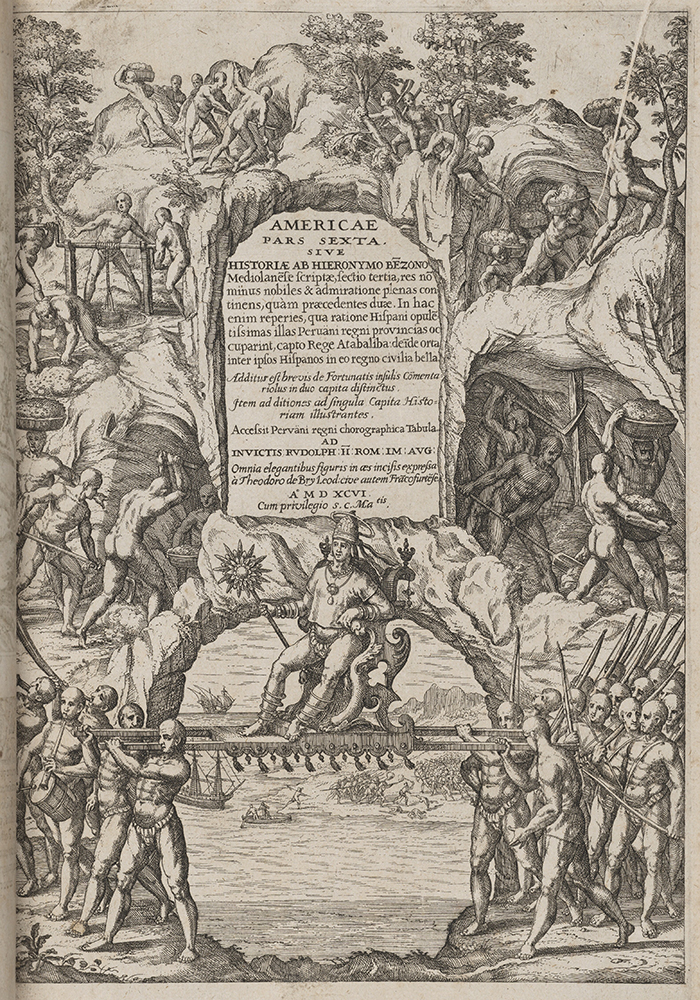 AMERICAE
PARS SEXTA.
SIVE
HISTORIÆ AB HIERONYMO BĒZONO
Mediolanēse scriptæ, sectio tertia, res nō
minus nobiles & admiratione plenas con
tinens, quàm præcedentes duæ. In hac
enim reperies, qua ratione Hispani opulē
tissimas illas Peruäni regni provincias oc
cuparint, capto Rege Atabaliba: deīde orta
inter ipsos Hispanos in eo regno civilia bella.
Additur est brevis de Fortunatis insulis Cōmenta
riolus in duo capita distinctus.
Item additiones ad singula Capita Histo-
riam illustrantes.
Accessit Peruäni regni chorographica Tabula
AD
INVICTIS RVDOLPH: II: ROM: IM: AVG:
Omnia elegantibus figuris in æs incisis expressa
à Theodoro de Bry Leod: cive autem Frācofurtēse
A° M D XCVI.
Cum privilegio S. C. Ma tis.